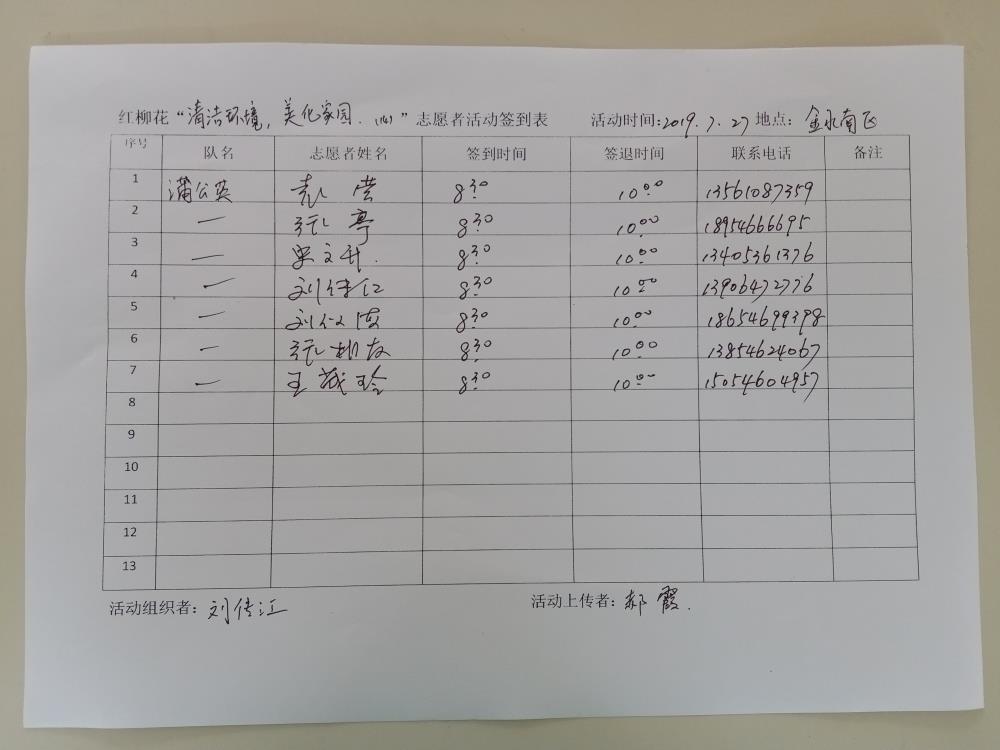 红柳花“清洁环境,美化家园.(16)”志愿者活动签到表 活动时间:2019.7.27 地点:金水南区
序号 队名 志愿者姓名 签到时间 签退时间 联系电话 备注
1 蒲公英 袁莹 8:30 10:00 13561087359
2 — 张亭 8:30 10:00 18954666695
3 — 文升. 8:30 10:00 13405361376
4 — 刘传江 8:30 10:00 13906472776
5 — 刘 8:30 10:00 18654699398
6 — 张相友 8:30 10:00 13854624067
7 — 王茂玲 8:30 10:00 15054604957
8
9
10
11
12
13
活动组织者:刘传江 活动上传者:郝霞.